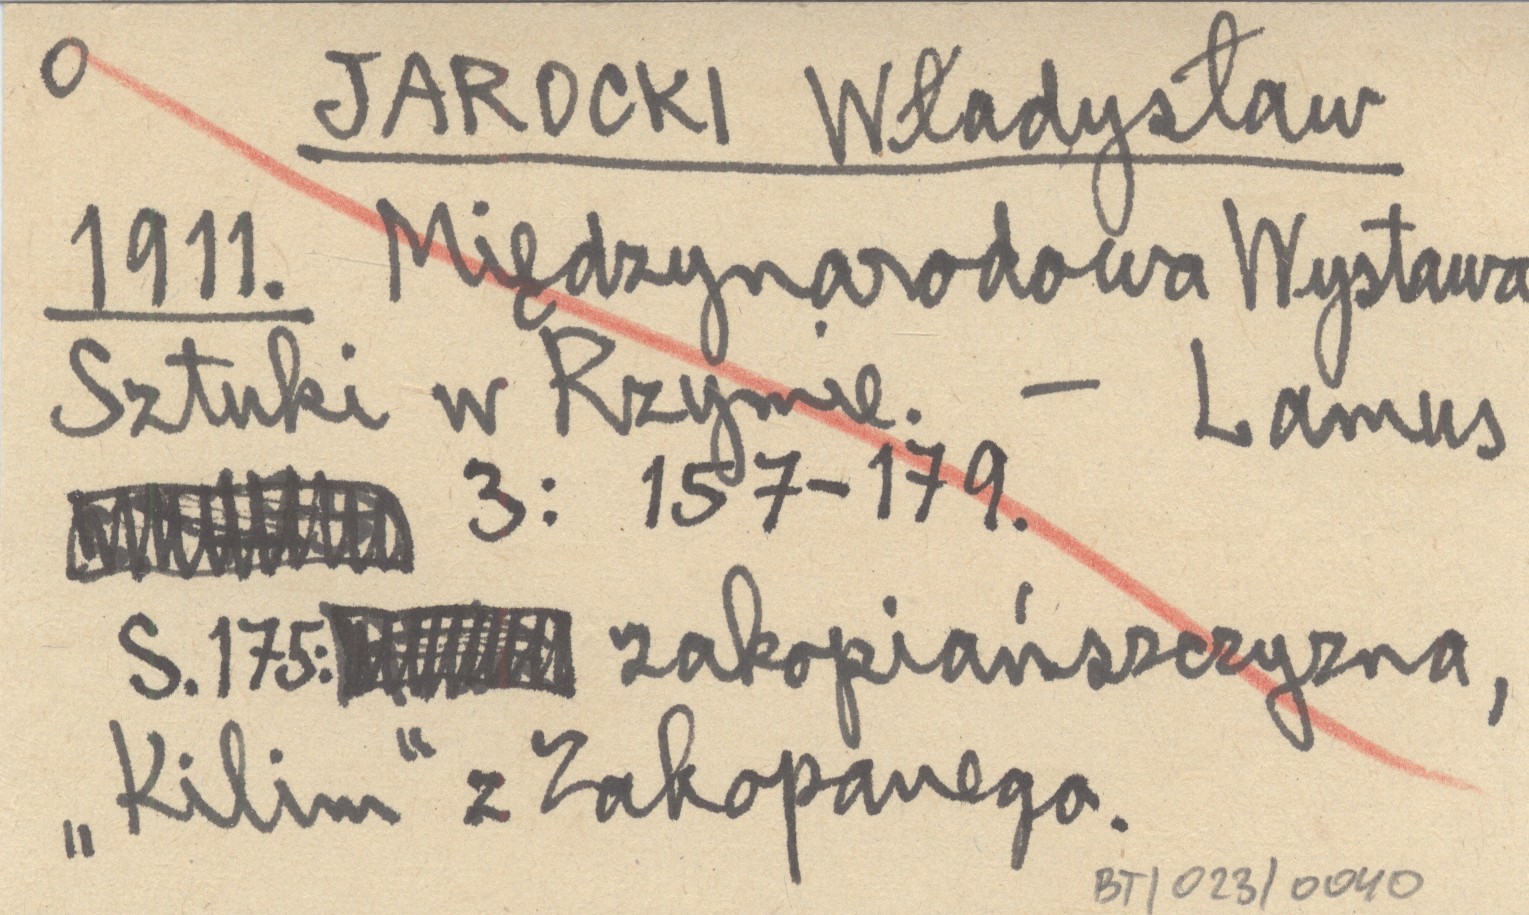 O JAROCKI Władysław
1911. Międzynarodowa Wystawa
Sztuki w Rzymie. – Lamus
3: 157-179.
S. 175: zakopiańszczyzna,
„Kilim" z Zakopanego.
BT/023/0040